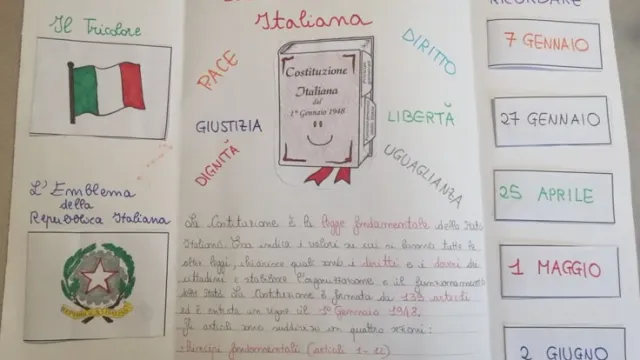 Italiana
Il Tricolore
L'Emblema
della
Repubblica Italiana
PACE
GIUSTIZIA
DIGNITÀ
Costituzione
Italiana
dal
1° Gennaio 1948
DIRITTO
LIBERTÀ
UGUAGLIANZA
La Costituzione è la legge fondamentale dello Stato
Italiano. Essa indica i valori su cui si basano tutte le
altre leggi, chiarisce quali sono i diritti e i doveri dei
cittadini e stabilisce l'organizzazione e il funzionamento
dello Stato. La Costituzione è formata da 139 articoli
ed è entrata in vigore il 1° Gennaio 1948.
Gli articoli sono suddivisi in quattro sezioni:
- Principi fondamentali (articoli 1-12)
RICORDARE
7 GENNAIO
27 GENNAIO
25 APRILE
1 MAGGIO
2 GIUGNO